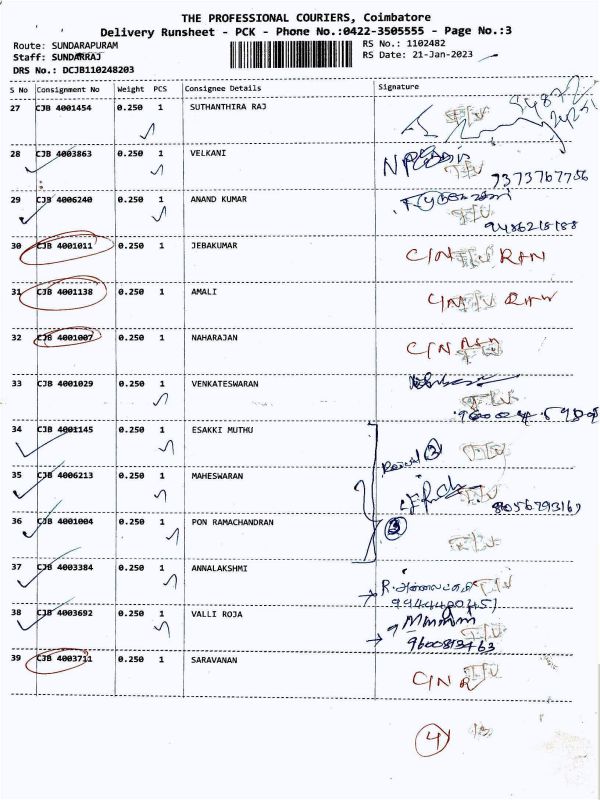 THE PROFESSIONAL COURIERS, Coimbatore
Delivery Runsheet - PCK - Phone No.:0422-3505555 - Page No.:3
Route: SUNDARAPURAM RS No.: 1102482
Staff: SUNDARRAJ RS Date: 21-Jan-2023
DRS No.: DCJB110248203
S No Consignment No Weight PCS Consignee Details Signature
27 CJB 4001454 0.250 1 SUTHANTHIRA RAJ
28 CJB 4003863 0.250 1 VELKANI
7373767756
29 CJB 4006240 0.250 1 ANAND KUMAR
9486218188
30 CJB 4001011 0.250 1 JEBAKUMAR C/N
31 CJB 4001138 0.250 1 AMALI C/N
32 CJB 4001007 0.250 1 NAHARAJAN C/N
33 CJB 4001029 0.250 1 VENKATESWARAN
34 CJB 4001145 0.250 1 ESAKKI MUTHU
35 CJB 4006213 0.250 1 MAHESWARAN
8056793169
36 CJB 4001004 0.250 1 PON RAMACHANDRAN
37 CJB 4003384 0.250 1 ANNALAKSHMI
38 CJB 4003692 0.250 1 VALLI ROJA
39 CJB 4003711 0.250 1 SARAVANAN
4